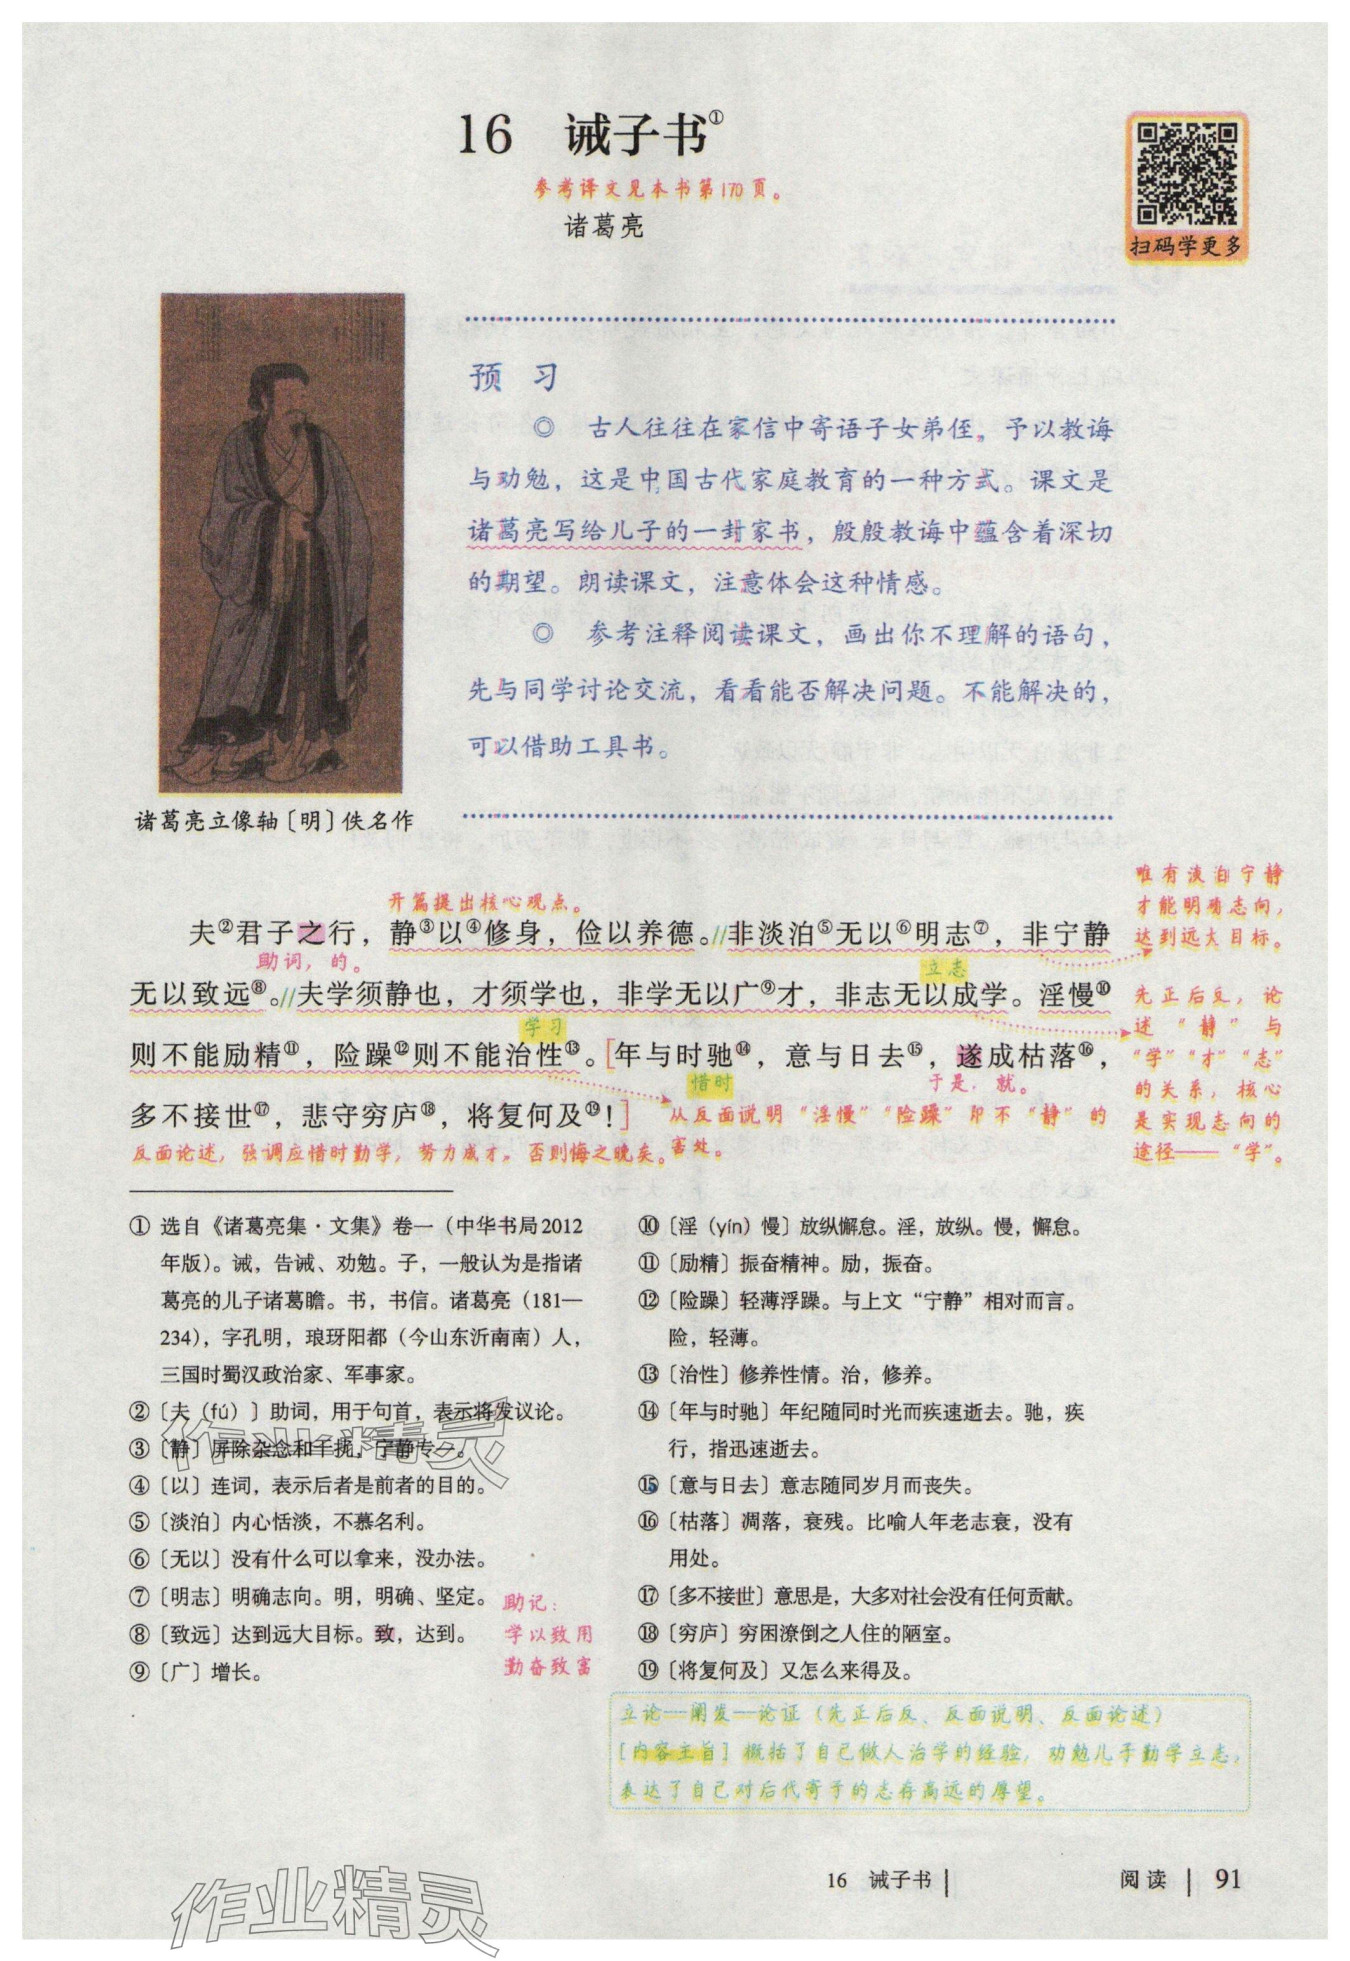 16 诫子书①
参考译文见本书第170页。
诸葛亮
扫码学更多
预 习
◎ 古人往往在家信中寄语子女弟侄，予以教诲
与劝勉，这是中国古代家庭教育的一种方式。课文是
诸葛亮写给儿子的一封家书，殷殷教诲中蕴含着深切
的期望。朗读课文，注意体会这种情感。
◎ 参考注释阅读课文，画出你不理解的语句，
先与同学讨论交流，看看能否解决问题。不能解决的，
可以借助工具书。
诸葛亮立像轴〔明〕佚名作
开篇提出核心观点。
夫②君子之行，静③以④修身，俭以养德。//非淡泊⑤无以⑥明志⑦，非宁静
助词，的。
立志
无以致远⑧。//夫学须静也，才须学也，非学无以广⑨才，非志无以成学。淫慢⑩
学习
则不能励精⑪，险躁⑫则不能治性⑬。[年与时驰⑭，意与日去⑮，遂成枯落⑯，
惜时
于是，就。
多不接世⑰，悲守穷庐⑱，将复何及⑲！]
从反面说明“淫慢”“险躁”即不“静”的
害处。
反面论述，强调应惜时勤学，努力成才，否则悔之晚矣。
唯有淡泊宁静
才能明确志向，
达到远大目标。
先正后反，论
述“静”与
“学”“才”“志”
的关系，核心
是实现志向的
途径——“学”。
① 选自《诸葛亮集·文集》卷一（中华书局2012
年版）。诫，告诫、劝勉。子，一般认为是指诸
葛亮的儿子诸葛瞻。书，书信。诸葛亮（181—
234），字孔明，琅玡阳都（今山东沂南南）人，
三国时蜀汉政治家、军事家。
② 〔夫（fú）〕助词，用于句首，表示将发议论。
③ 〔静〕屏除杂念和干扰，宁静专一。
④ 〔以〕连词，表示后者是前者的目的。
⑤ 〔淡泊〕内心恬淡，不慕名利。
⑥ 〔无以〕没有什么可以拿来，没办法。
⑦ 〔明志〕明确志向。明，明确、坚定。
⑧ 〔致远〕达到远大目标。致，达到。
⑨ 〔广〕增长。
助记：
学以致用
勤奋致富
⑩ 〔淫（yín）慢〕放纵懈怠。淫，放纵。慢，懈怠。
⑪ 〔励精〕振奋精神。励，振奋。
⑫ 〔险躁〕轻薄浮躁。与上文“宁静”相对而言。
险，轻薄。
⑬ 〔治性〕修养性情。治，修养。
⑭ 〔年与时驰〕年纪随同时光而疾速逝去。驰，疾
行，指迅速逝去。
⑮ 〔意与日去〕意志随同岁月而丧失。
⑯ 〔枯落〕凋落，衰残。比喻人年老志衰，没有
用处。
⑰ 〔多不接世〕意思是，大多对社会没有任何贡献。
⑱ 〔穷庐〕穷困潦倒之人住的陋室。
⑲ 〔将复何及〕又怎么来得及。
立论—阐发—论证（先正后反、反面说明、反面论述）
[内容主旨] 概括了自己做人治学的经验，劝勉儿子勤学立志，
表达了自己对后代寄予的志存高远的厚望。
作业精灵
16 诫子书
阅读
91
作业精灵